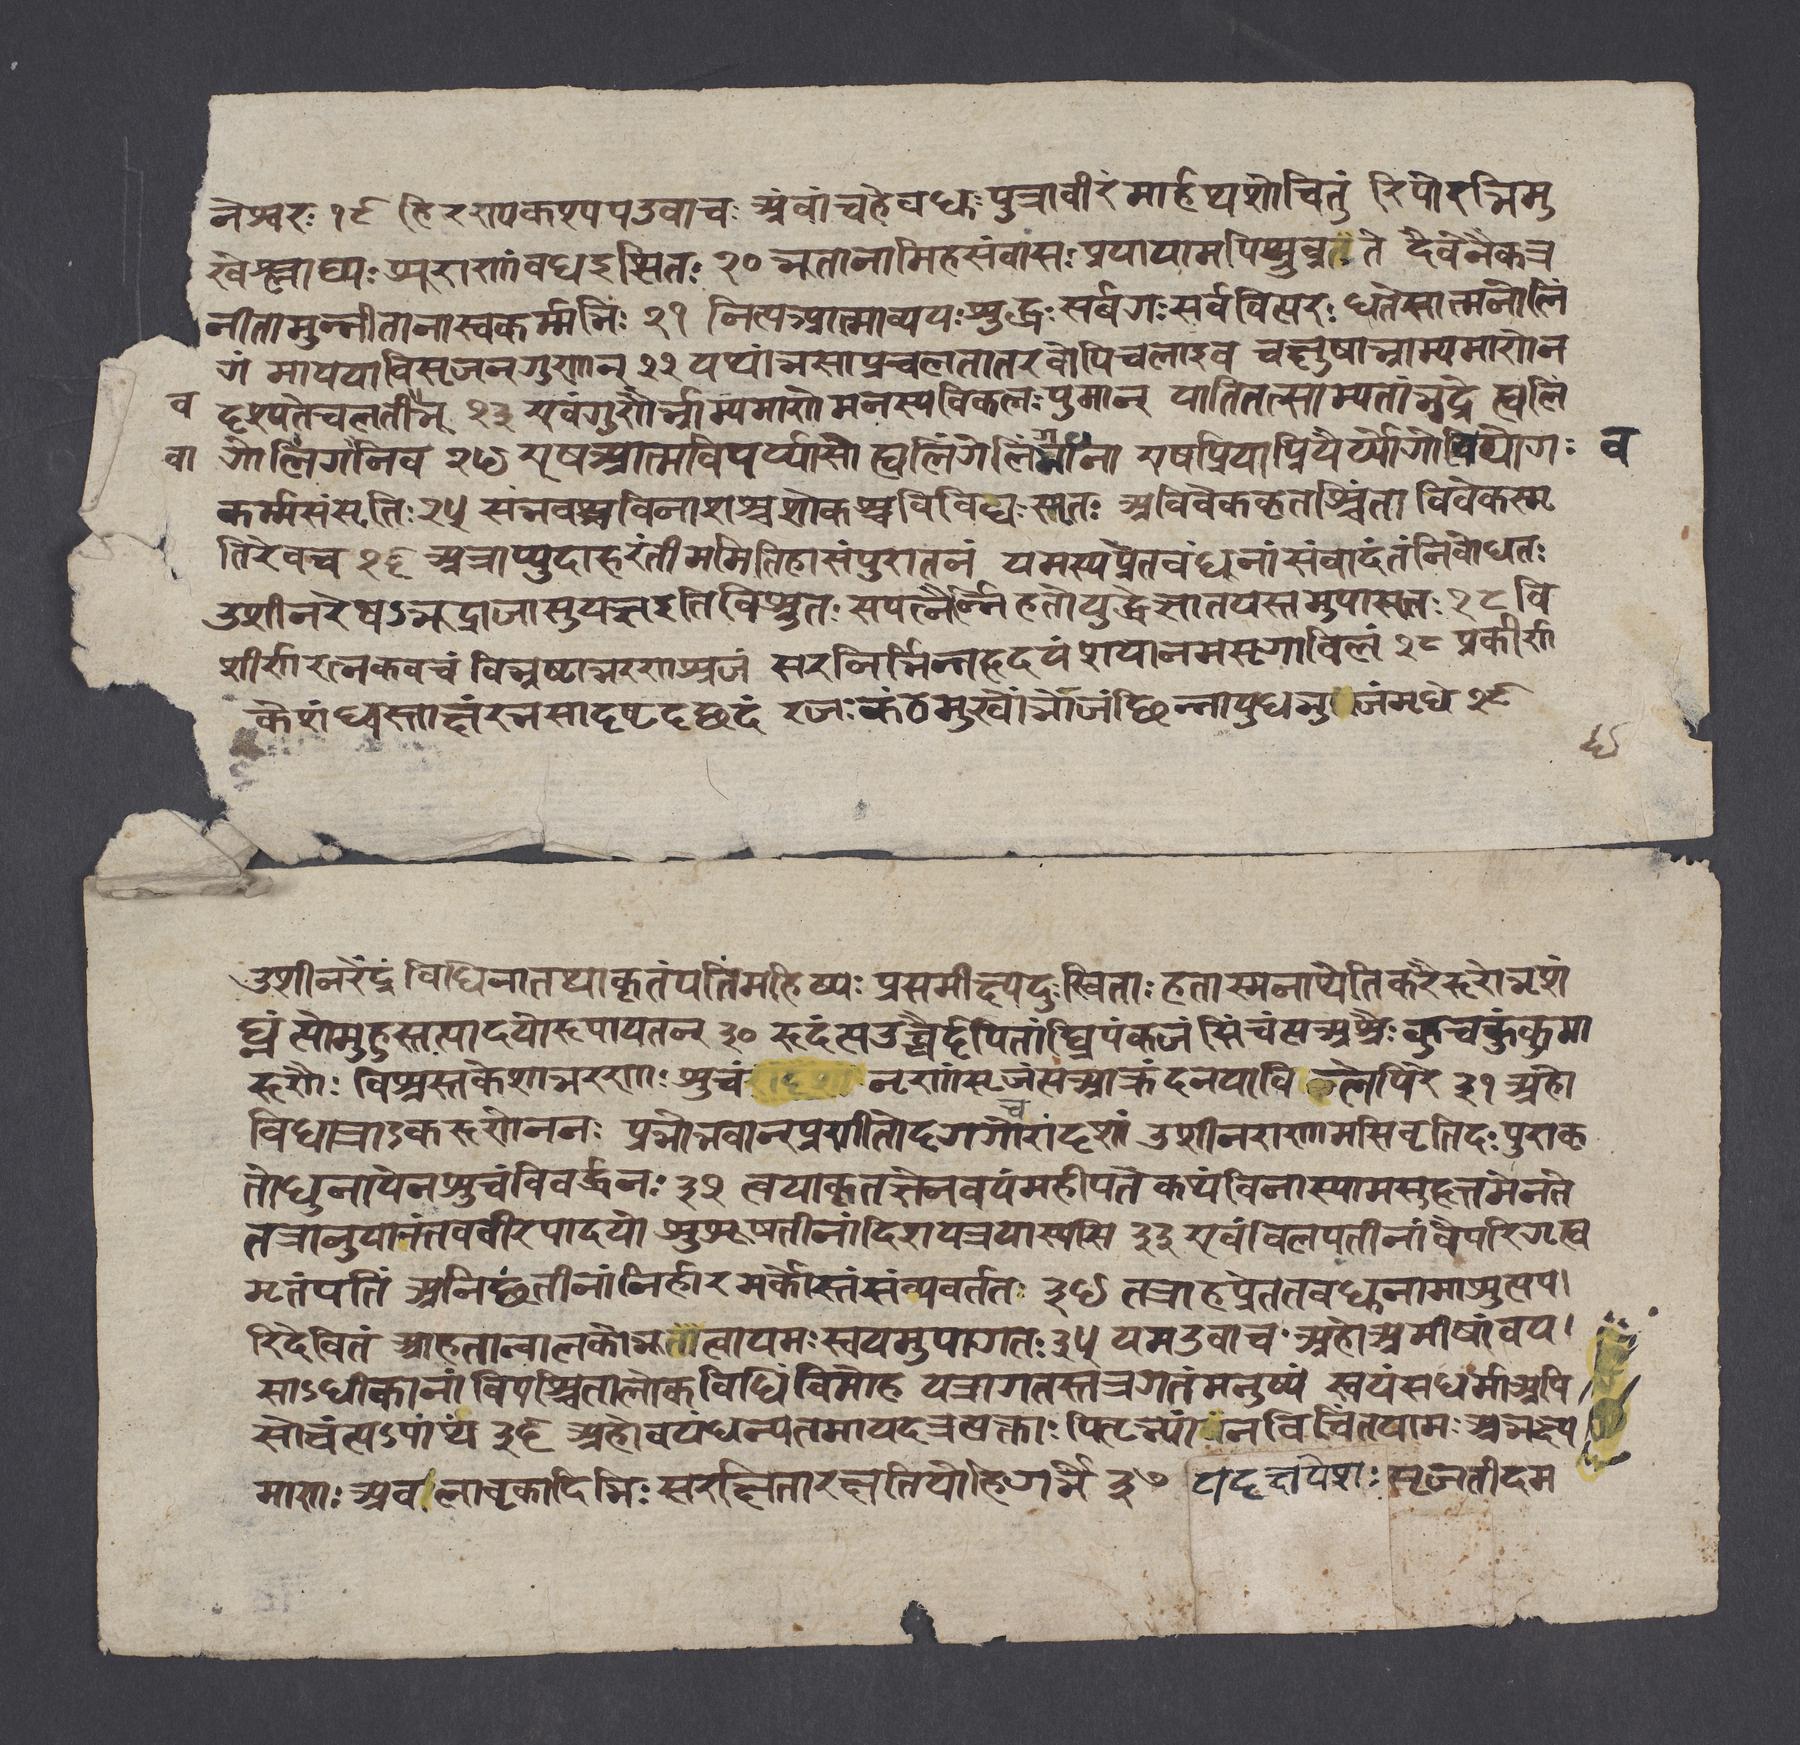 नश्वरः १९ हिरण्यकश्यपउवाच अंवांचहेवध्वःपुत्रावीरंमार्हथशोचितुं रिपोरभिमु
खेश्लाघ्यः शूराणांवधइसितः २० भूतानामिहसंवासः प्रपायामपिसुव्रते दैवेनैकत्र
नीतामुन्नीतानास्वकर्म्मभिः २१ नित्यआत्माव्ययःशुद्धःसर्वगःसर्ववित्परः धतेसात्मनोलिं
गं माययाविसृजनगुणान् २२ यथांभसाप्रचलतातरवोपिचलाइव चक्षुषाभ्राम्यमाणेन
दृश्यतेचलतीभू २३ एवंगुणैर्भ्राम्यमाणेमनस्यविकलःपुमान् यातितत्साम्यतांभद्रे ह्यलिं
गोलिंगनिव २४ एषआत्मविपर्य्यासो ह्यलिंगेलिंगभावना एषप्रियाप्रियैर्य्योगोवियोगः
कर्म्मसंसृतिः २५ संभवश्चविनाशश्चशोकश्चविविधःस्मृतः अविवेककृतश्चिंता विवेकस्मृ
तिरेवच २६ अत्राप्युदाहरंतीममितिहासंपुरातनं यमस्यप्रेतवंधूनां संवादंतंनिवोधतः
उशीनरेषऽभूद्राजासुयज्ञइतिविश्रुतः सपत्नैर्न्निहतोयुद्धेज्ञातयस्तमुपासतः २८ वि
शीर्णरत्नकवचं विभ्रष्टाभरणश्रजं सरनिर्भिन्नहृदयं शयानमसृगाविलं २८ प्रकीर्ण
केशंध्वस्ताक्षंरभसादष्टदछदं रजःकंठमुखांभोजंछिन्नायुधभुजंमृधे २९
उशीनरेंद्रं विधिनातथाकृतंपतिंमहिष्यः प्रसमीक्ष्यदुःखिताः हतास्मनाथेतिकरैरूरोभृशं
घ्नंत्योमुहुस्तत्पादयोरूपापतन् ३० रूदंत्यउच्चैर्दयितांघ्रिपंकजं सिंचंत्यअश्रैः कुचकुंकुमा
रूणैः विश्रस्तकेशाभरणाः शुचंनृणांसृजंत्यआक्रंदनयाविलेपिरे ३१ अहो
विधात्राऽकरूणेननः प्रभोभवान्प्रणीतोदृगगोचरांदशां उशीनराणामसिवृतिदःपुराकृ
तोधुनायेनशुचंविवर्द्धनः ३२ त्वयाकृतज्ञेनवयंमहीपते कथंविनास्यामसुहृत्तमेनते
तत्रानुयानंतववीरपादयो शुश्रूषतीनांदिशयत्रयास्यसि ३३ एवंविलपतीनांवैपरिगृह्य
मृतंपतिं अनिछंतीनांनिर्हारमर्कोस्तंसंन्यवर्ततः ३४ तत्राहप्रेततवंधूनामाश्रुत्यप
रिदेवितं आहतान्वालकोभूत्वायमःस्वयमुपागतः ३५ यमउवाच अहोअमीषांवय
साऽधीकानां विपश्चितालोकविधिंविमोह यत्रागतस्तत्रगतंमनुष्यं स्वयंसधर्माअपि
सोचंत्यऽपार्थं ३६ अहोवयंधन्यतमायदत्रत्यक्ताः पितृभ्यांनविचिंतयामः अभक्ष्य
माणाः अवलावृकादिभिः सरक्षितारक्षतियोहिगर्भे ३७ यदृच्छयेशः सृजतीदम